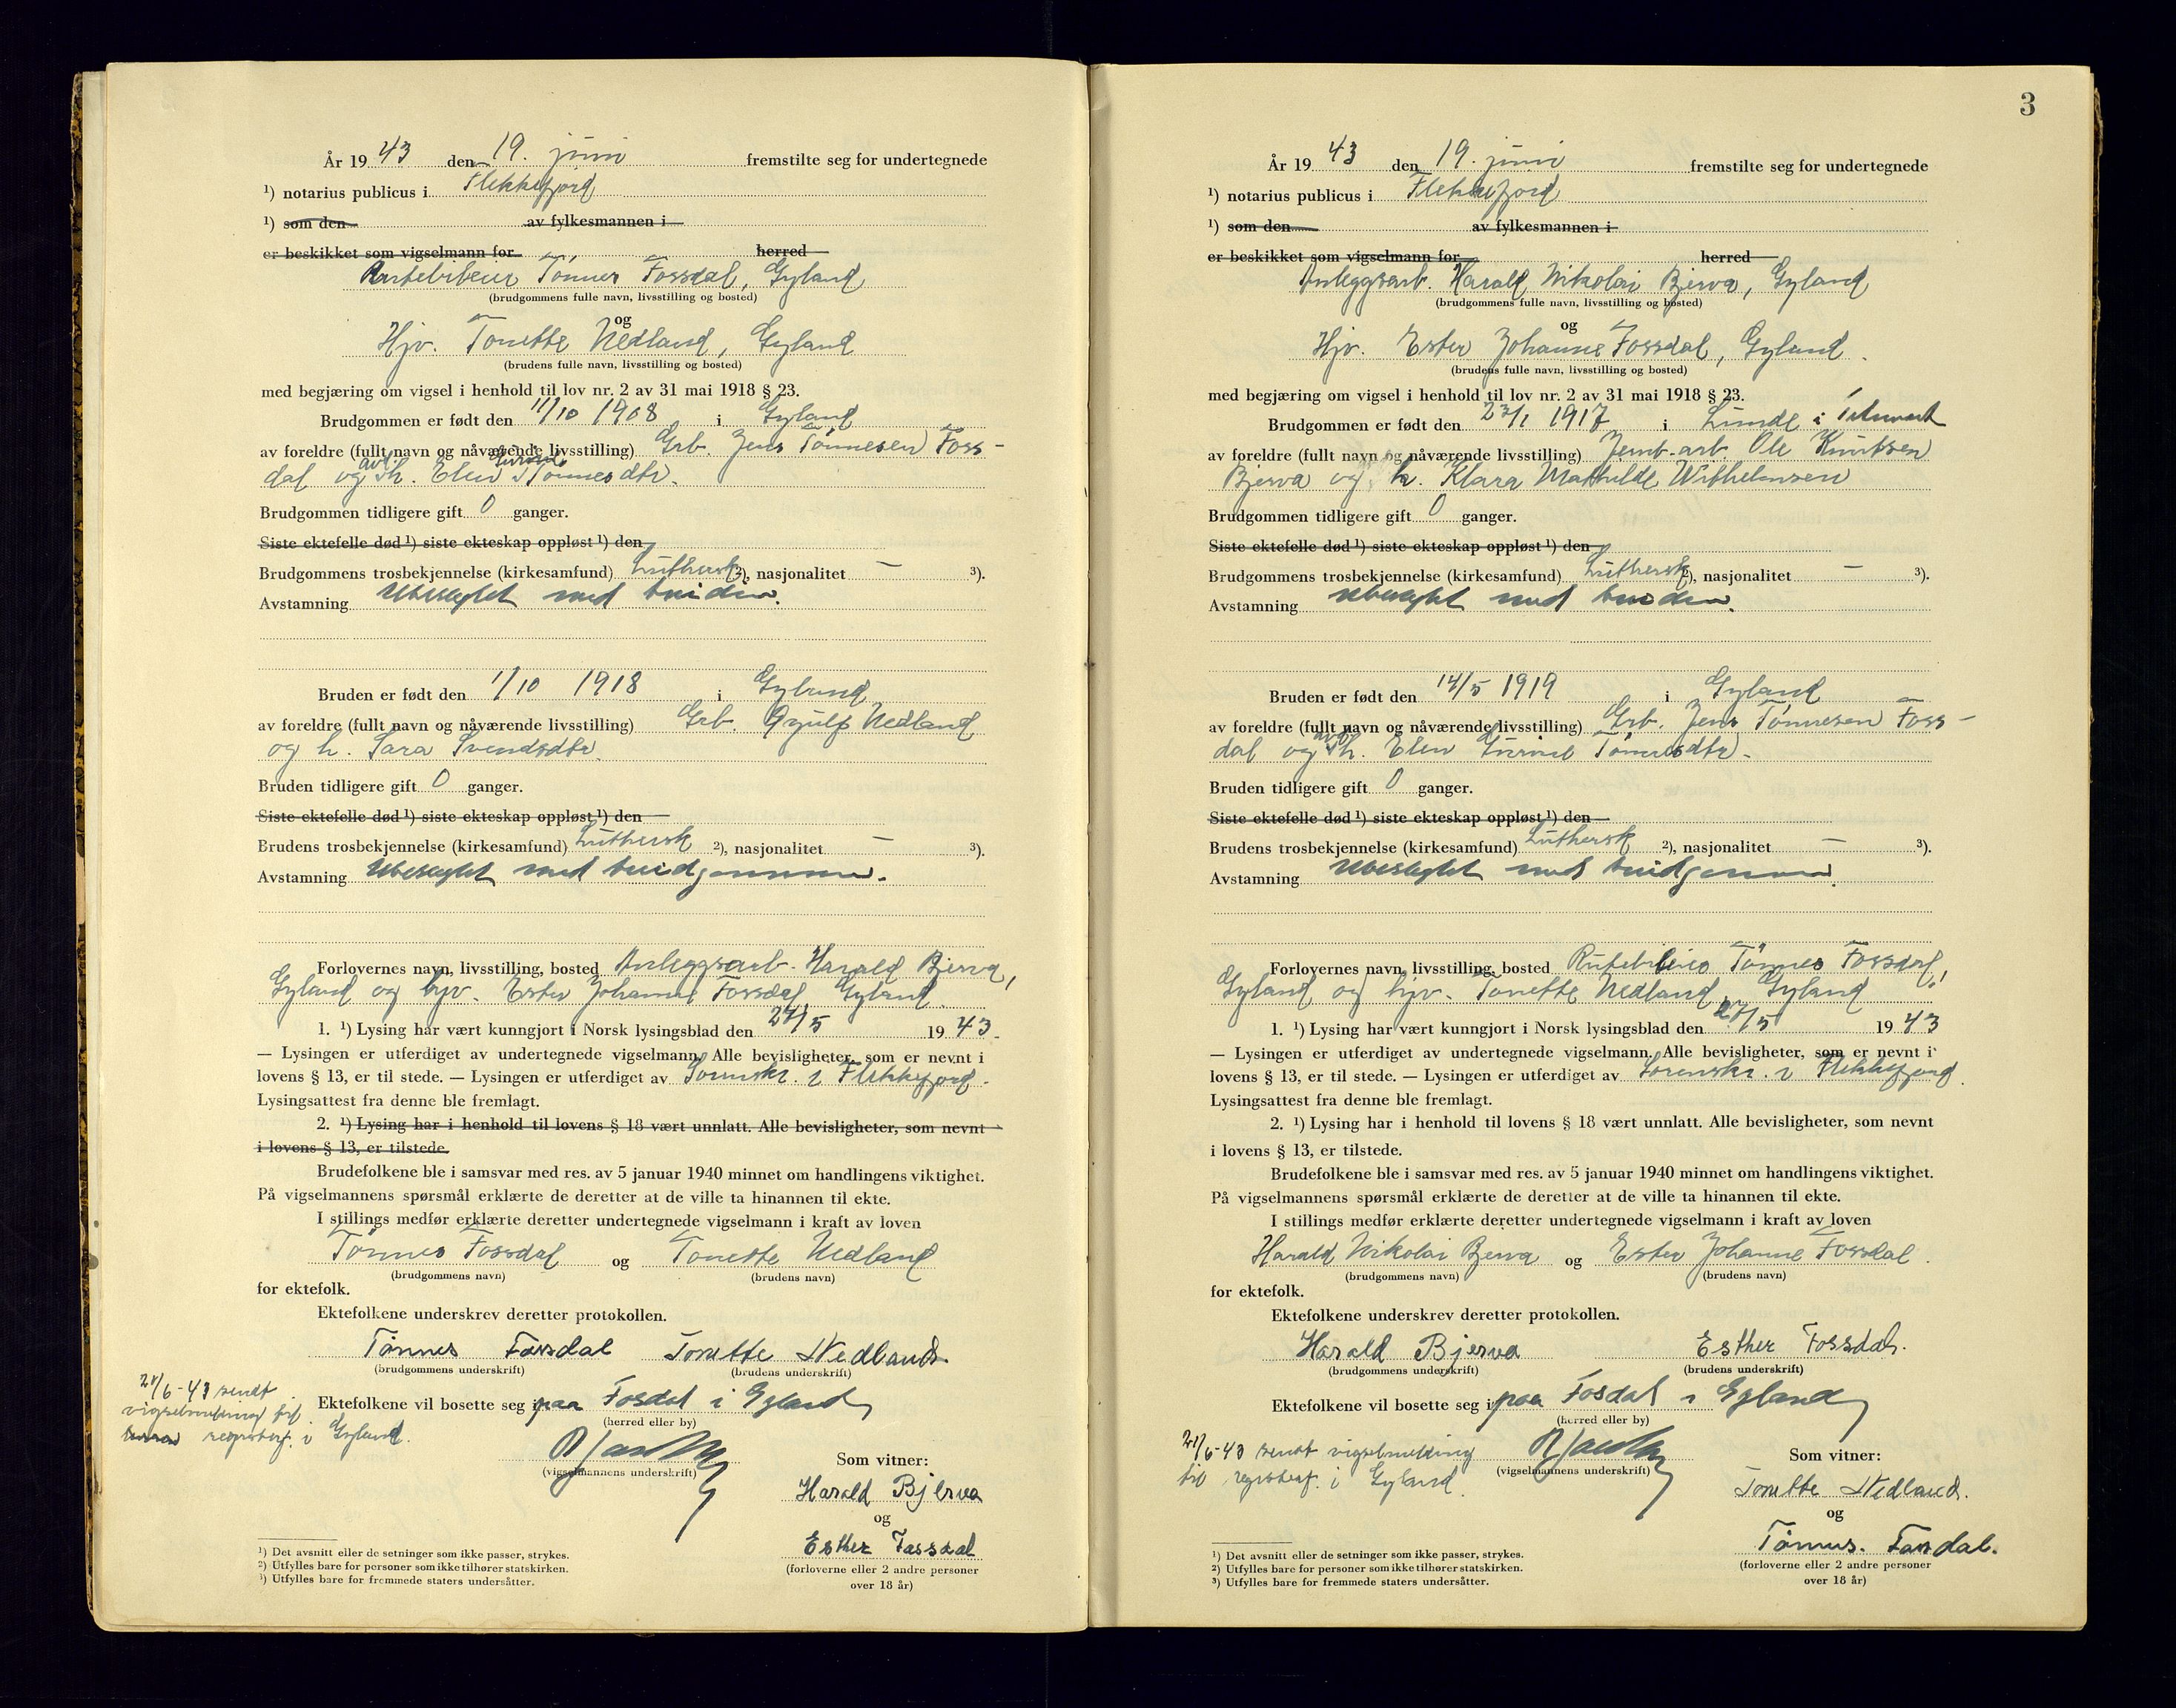 År 19 43 den 19. juni fremstilte seg for undertegnede
¹) notarius publicus i Flekkefjord
¹) som den av fylkesmannen i
er beskikket som vigselmann for herred
Tønnes Fossdal, Gyland
(brudgommens fulle navn, livsstilling og bosted)
og
Hjv. Tonette Nedland, Gyland
(brudens fulle navn, livsstilling og bosted)
med begjæring om vigsel i henhold til lov nr. 2 av 31 mai 1918 § 23.
Brudgommen er født den 11/10 1908 i Gyland
av foreldre (fullt navn og nåværende livsstilling) Grb. Jens Tønnesen Foss-
dal og avd. h. Elen Gurine Tønnesdtr.
Brudgommen tidligere gift 0 ganger.
Siste ektefelle død ¹) siste ekteskap oppløst ¹) den
Brudgommens trosbekjennelse (kirkesamfund) Luthersk ²), nasjonalitet — ³).
Avstamning Ubeslegtet med bruden.
Bruden er født den 1/10 1918 i Gyland
av foreldre (fullt navn og nåværende livsstilling) Grb. Gjulf Nedland
og h. Sara Svendsdtr.
Bruden tidligere gift 0 ganger.
Siste ektefelle død ¹) siste ekteskap oppløst ¹) den
Brudens trosbekjennelse (kirkesamfund) Luthersk ²), nasjonalitet — ³).
Avstamning Ubeslegtet med brudgommen.
Forlovernes navn, livsstilling, bosted Anleggsarb. Harald Bjerva,
Gyland og hjv. Ester Johanne Fossdal, Gyland.
1. ¹) Lysing har vært kunngjort i Norsk lysingsblad den 27/5 19 43.
— Lysingen er utferdiget av undertegnede vigselmann. Alle bevisligheter, som er nevnt i
lovens § 13, er til stede. — Lysingen er utferdiget av Sorenskr. i Flekkefjord.
Lysingsattest fra denne ble fremlagt.
2. ¹) Lysing har i henhold til lovens § 18 vært unnlatt. Alle bevisligheter, som nevnt
i lovens § 13, er tilstede.
Brudefolkene ble i samsvar med res. av 5 januar 1940 minnet om handlingens viktighet.
På vigselmannens spørsmål erklærte de deretter at de ville ta hinannen til ekte.
I stillings medfør erklærte deretter undertegnede vigselmann i kraft av loven
Tønnes Fossdal og Tonette Nedland
(brudgommens navn) (brudens navn)
for ektefolk.
Ektefolkene underskrev deretter protokollen.
Tønnes Fossdal Tonette Nedland.
(brudgommens underskrift) (brudens underskrift)
Ektefolkene vil bosette seg i paa Fosdal i Gyland
(herred eller by)
21/6-43 sendt
vigselmelding til
registerf. i Gyland.
(vigselmannens underskrift)
Som vitner:
Harald Bjerva
og
Esther Fossdal
(forloverne eller 2 andre personer
over 18 år)
¹) Det avsnitt eller de setninger som ikke passer, strykes.
²) Utfylles bare for personer som ikke tilhører statskirken.
³) Utfylles bare for fremmede staters undersåtter.
3
År 19 43 den 19. juni fremstilte seg for undertegnede
¹) notarius publicus i Flekkefjord
¹) som den av fylkesmannen i
er beskikket som vigselmann for herred
Anleggsarb. Harald Nikolai Bjerva, Gyland
(brudgommens fulle navn, livsstilling og bosted)
og
Hjv. Ester Johanne Fossdal, Gyland.
(brudens fulle navn, livsstilling og bosted)
med begjæring om vigsel i henhold til lov nr. 2 av 31 mai 1918 § 23.
Brudgommen er født den 23/1 1917 i Lunde i Telemark
av foreldre (fullt navn og nåværende livsstilling) Jernb.arb. Ole Knutsen
Bjerva og h. Klara Mathilde Wilhelmsen
Brudgommen tidligere gift 0 ganger.
Siste ektefelle død ¹) siste ekteskap oppløst ¹) den
Brudgommens trosbekjennelse (kirkesamfund) Luthersk ²), nasjonalitet — ³).
Avstamning Ubeslegtet med bruden.
Bruden er født den 14/5 1919 i Gyland
av foreldre (fullt navn og nåværende livsstilling) Grb. Jens Tønnesen Foss-
dal og avd. h. Elen Gurine Tønnesdtr.
Bruden tidligere gift 0 ganger.
Siste ektefelle død ¹) siste ekteskap oppløst ¹) den
Brudens trosbekjennelse (kirkesamfund) Luthersk ²), nasjonalitet — ³).
Avstamning Ubeslegtet med brudgommen.
Forlovernes navn, livsstilling, bosted Tønnes Fossdal,
Gyland og hjv. Tonette Nedland, Gyland.
1. ¹) Lysing har vært kunngjort i Norsk lysingsblad den 27/5 19 43
— Lysingen er utferdiget av undertegnede vigselmann. Alle bevisligheter, som er nevnt i
lovens § 13, er til stede. — Lysingen er utferdiget av Sorenskr. i Flekkefjord.
Lysingsattest fra denne ble fremlagt.
2. ¹) Lysing har i henhold til lovens § 18 vært unnlatt. Alle bevisligheter, som nevnt
i lovens § 13, er tilstede.
Brudefolkene ble i samsvar med res. av 5 januar 1940 minnet om handlingens viktighet.
På vigselmannens spørsmål erklærte de deretter at de ville ta hinannen til ekte.
I stillings medfør erklærte deretter undertegnede vigselmann i kraft av loven
Harald Nikolai Bjerva og Ester Johanne Fossdal.
(brudgommens navn) (brudens navn)
for ektefolk.
Ektefolkene underskrev deretter protokollen.
Harald Bjerva Esther Fossdal.
(brudgommens underskrift) (brudens underskrift)
Ektefolkene vil bosette seg i paa Fosdal i Gyland
(herred eller by)
21/6-43 sendt vigselmelding
til registerf. i Gyland.
(vigselmannens underskrift)
Som vitner:
Tonette Nedland.
og
Tønnes. Fossdal.
(forloverne eller 2 andre personer
over 18 år)
¹) Det avsnitt eller de setninger som ikke passer, strykes.
²) Utfylles bare for personer som ikke tilhører statskirken.
³) Utfylles bare for fremmede staters undersåtter.